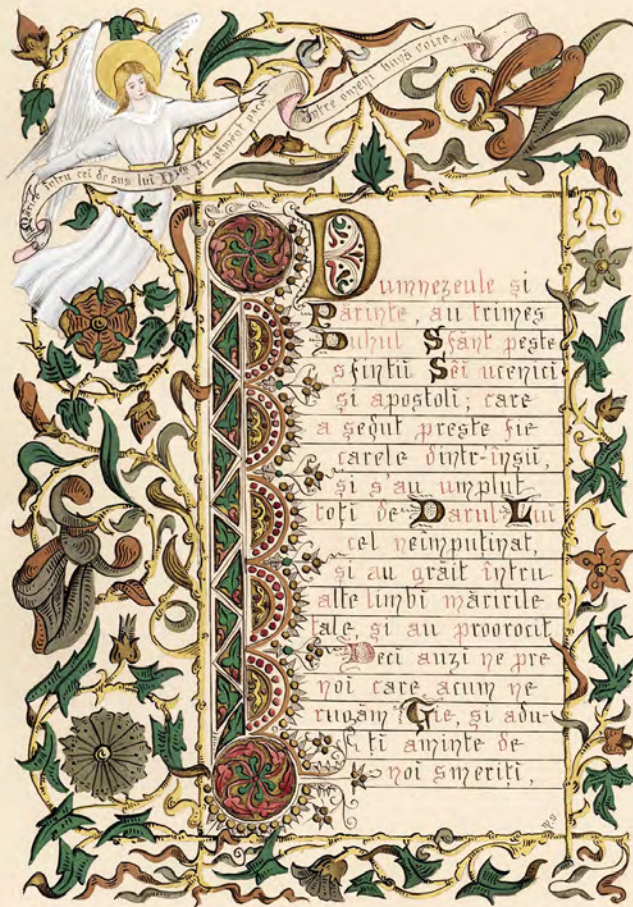 Mărire întru cei de sus lui D-zeu Pre pământ pace
între omeni bună voire
Dumnezeule și
Părinte, au trimes
Duhul Sfânt peste
sfinții Sëi ucenici
și apostoli; care
a șeḑut preste fie
carele dintr-înșii,
și s'au umplut
toți de Darul Lui
cel neîmpuținat,
și au grăit întru
alte limbi măririle
tale, și au proorocit
Deci auzi ne pre
noi care acum ne
rugăm Ție, și adu-
ți aminte de
noi smeriți,